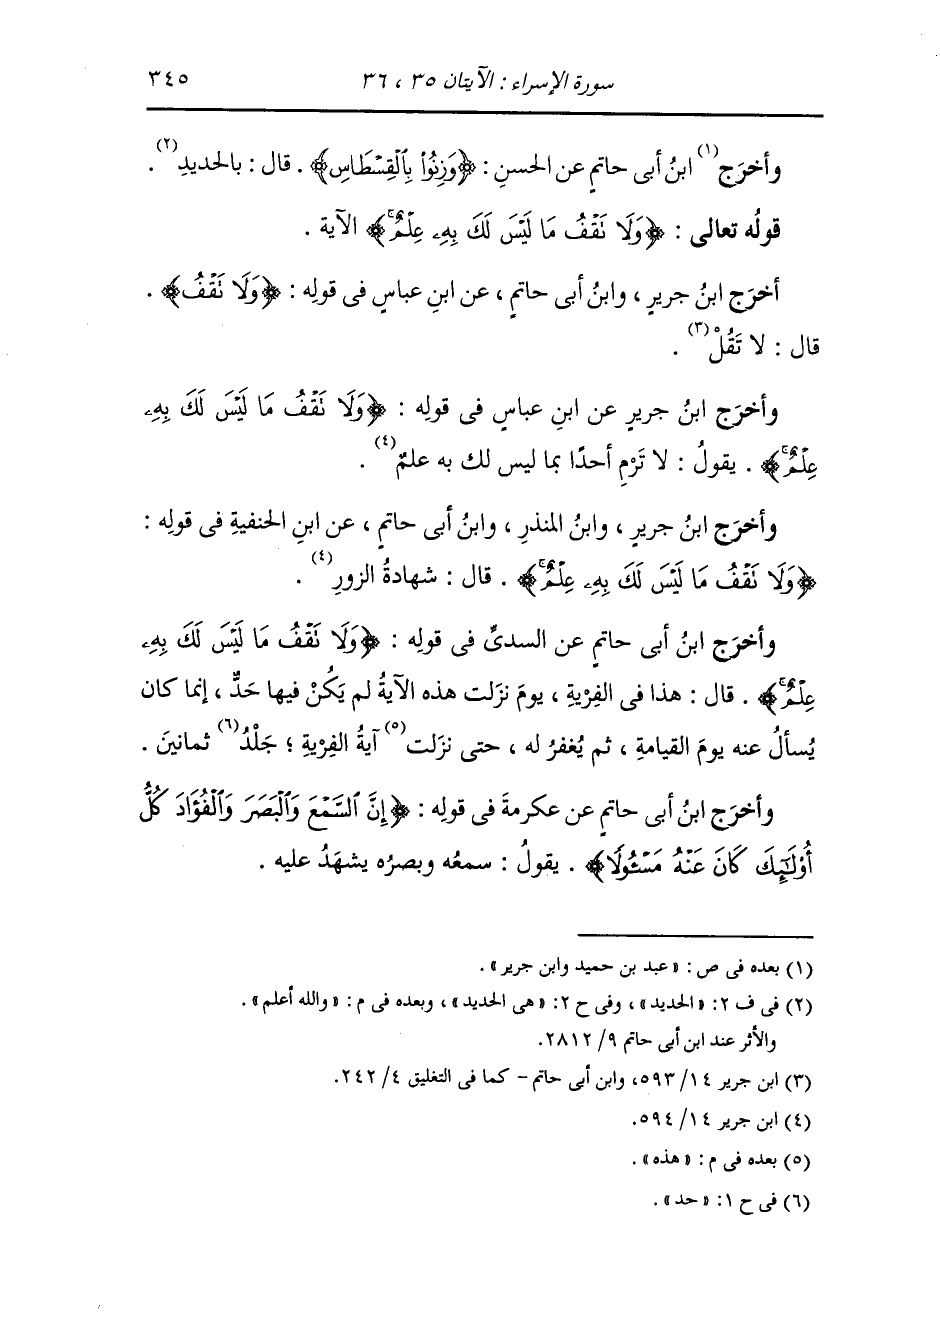 سورة الإسراء : الآيتان ٣٥ ، ٣٦ ٣٤٥
وأخرَج(١) ابنُ أبى حاتمٍ عن الحسنِ : ﴿وَزِنُوا۟ بِٱلْقِسْطَاسِ﴾ . قال : بالحديدِ(٢) .
قولُه تعالى : ﴿وَلَا نَقْفُ مَا لَيْسَ لَكَ بِهِۦ عِلْمٌ ۚ﴾ الآية .
أخرَج ابنُ جريرٍ ، وابنُ أبى حاتمٍ ، عن ابنِ عباسٍ فى قولِه : ﴿وَلَا نَقْفُ﴾ .
قال : لا تَقُلْ(٣) .
وأخرَج ابنُ جريرٍ عن ابنِ عباسٍ فى قولِه : ﴿وَلَا نَقْفُ مَا لَيْسَ لَكَ بِهِۦ
عِلْمٌ ۚ﴾ . يقولُ : لا تَرْمِ أحدًا بما ليس لك به علمٌ(٤) .
وأخرَج ابنُ جريرٍ ، وابنُ المنذرِ ، وابنُ أبى حاتمٍ ، عن ابنِ الحنفيةِ فى قولِه :
﴿وَلَا نَقْفُ مَا لَيْسَ لَكَ بِهِۦ عِلْمٌ ۚ﴾ . قال : شهادةُ الزورِ(٤) .
وأخرَج ابنُ أبى حاتمٍ عن السدىِّ فى قولِه : ﴿وَلَا نَقْفُ مَا لَيْسَ لَكَ بِهِۦ
عِلْمٌ ۚ﴾ . قال : هذا فى الفِرْيةِ ، يومَ نزَلت هذه الآيةُ لم يَكُنْ فيها حَدٌّ ، إنما كان
يُسألُ عنه يومَ القيامةِ ، ثم يُغفرُ له ، حتى نزَلت(٥) آيةُ الفِرْيةِ ؛ جَلْدُ(٦) ثمانينَ .
وأخرَج ابنُ أبى حاتمٍ عن عكرمةَ فى قولِه : ﴿إِنَّ ٱلسَّمْعَ وَٱلْبَصَرَ وَٱلْفُؤَادَ كُلُّ
أُو۟لَٰٓئِكَ كَانَ عَنْهُ مَسْـُٔولًا﴾ . يقولُ : سمعُه وبصرُه يشهَدُ عليه .
(١) بعده فى ص : «عبد بن حميد وابن جرير» .
(٢) فى ف ٢: «الحديد» ، وفى ح ٢: «هى الحديد» ، وبعده فى م : «والله أعلم» .
والأثر عند ابن أبى حاتم ٩/ ٢٨١٢.
(٣) ابن جرير ١٤/ ٥٩٣، وابن أبى حاتم - كما فى التغليق ٤/ ٢٤٢.
(٤) ابن جرير ١٤/ ٥٩٤.
(٥) بعده فى م : «هذه» .
(٦) فى ح ١: «حد» .